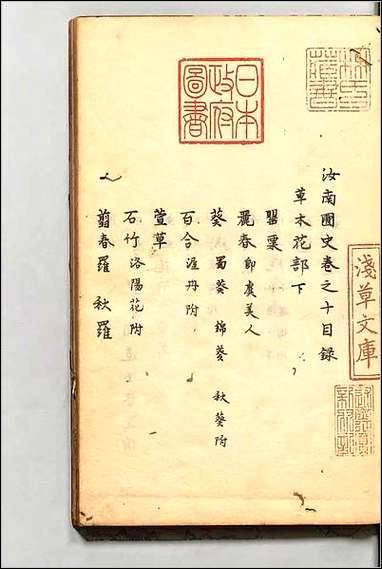 汝南圃史卷之十目録
草木花部下
罌粟
麗春即虞美人
葵 蜀葵 錦葵 秋葵附
百合渥丹附
萱草
石竹洛陽花附
翦春羅 秋羅
日本
政府
圖書
淺草文庫